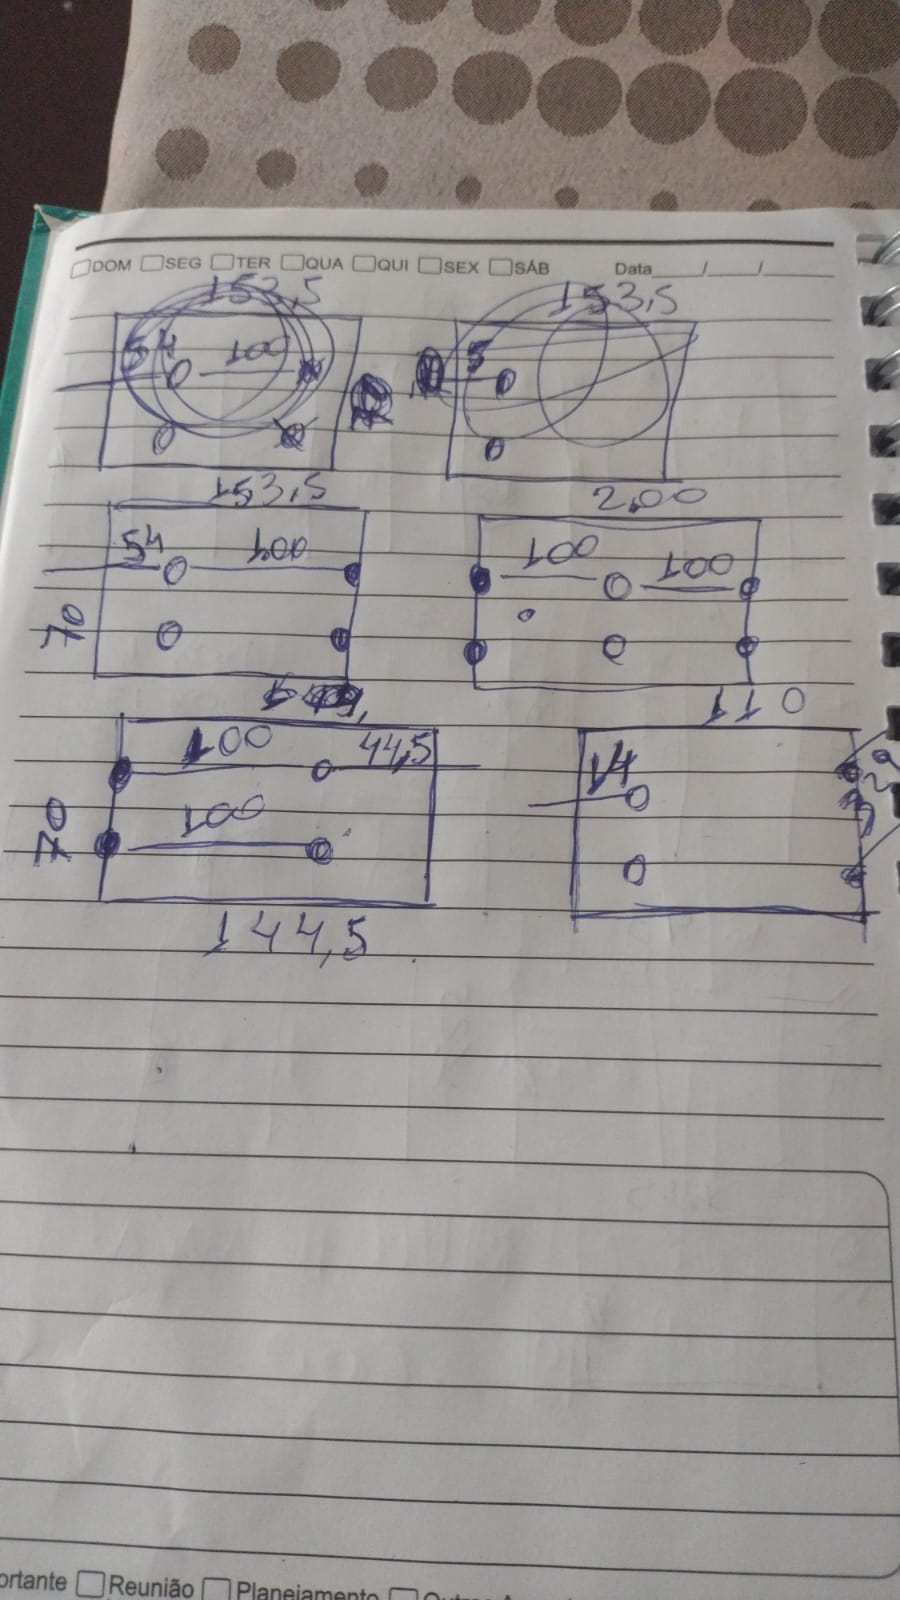 DOM SEG TER QUA QUI SEX SÁB Data / /
153,5 153,5
54 100 5
153,5 2,00
54 1,00 100 100
70
110
100 44,5 14
70 100
144,5
ortante Reunião Planejamento